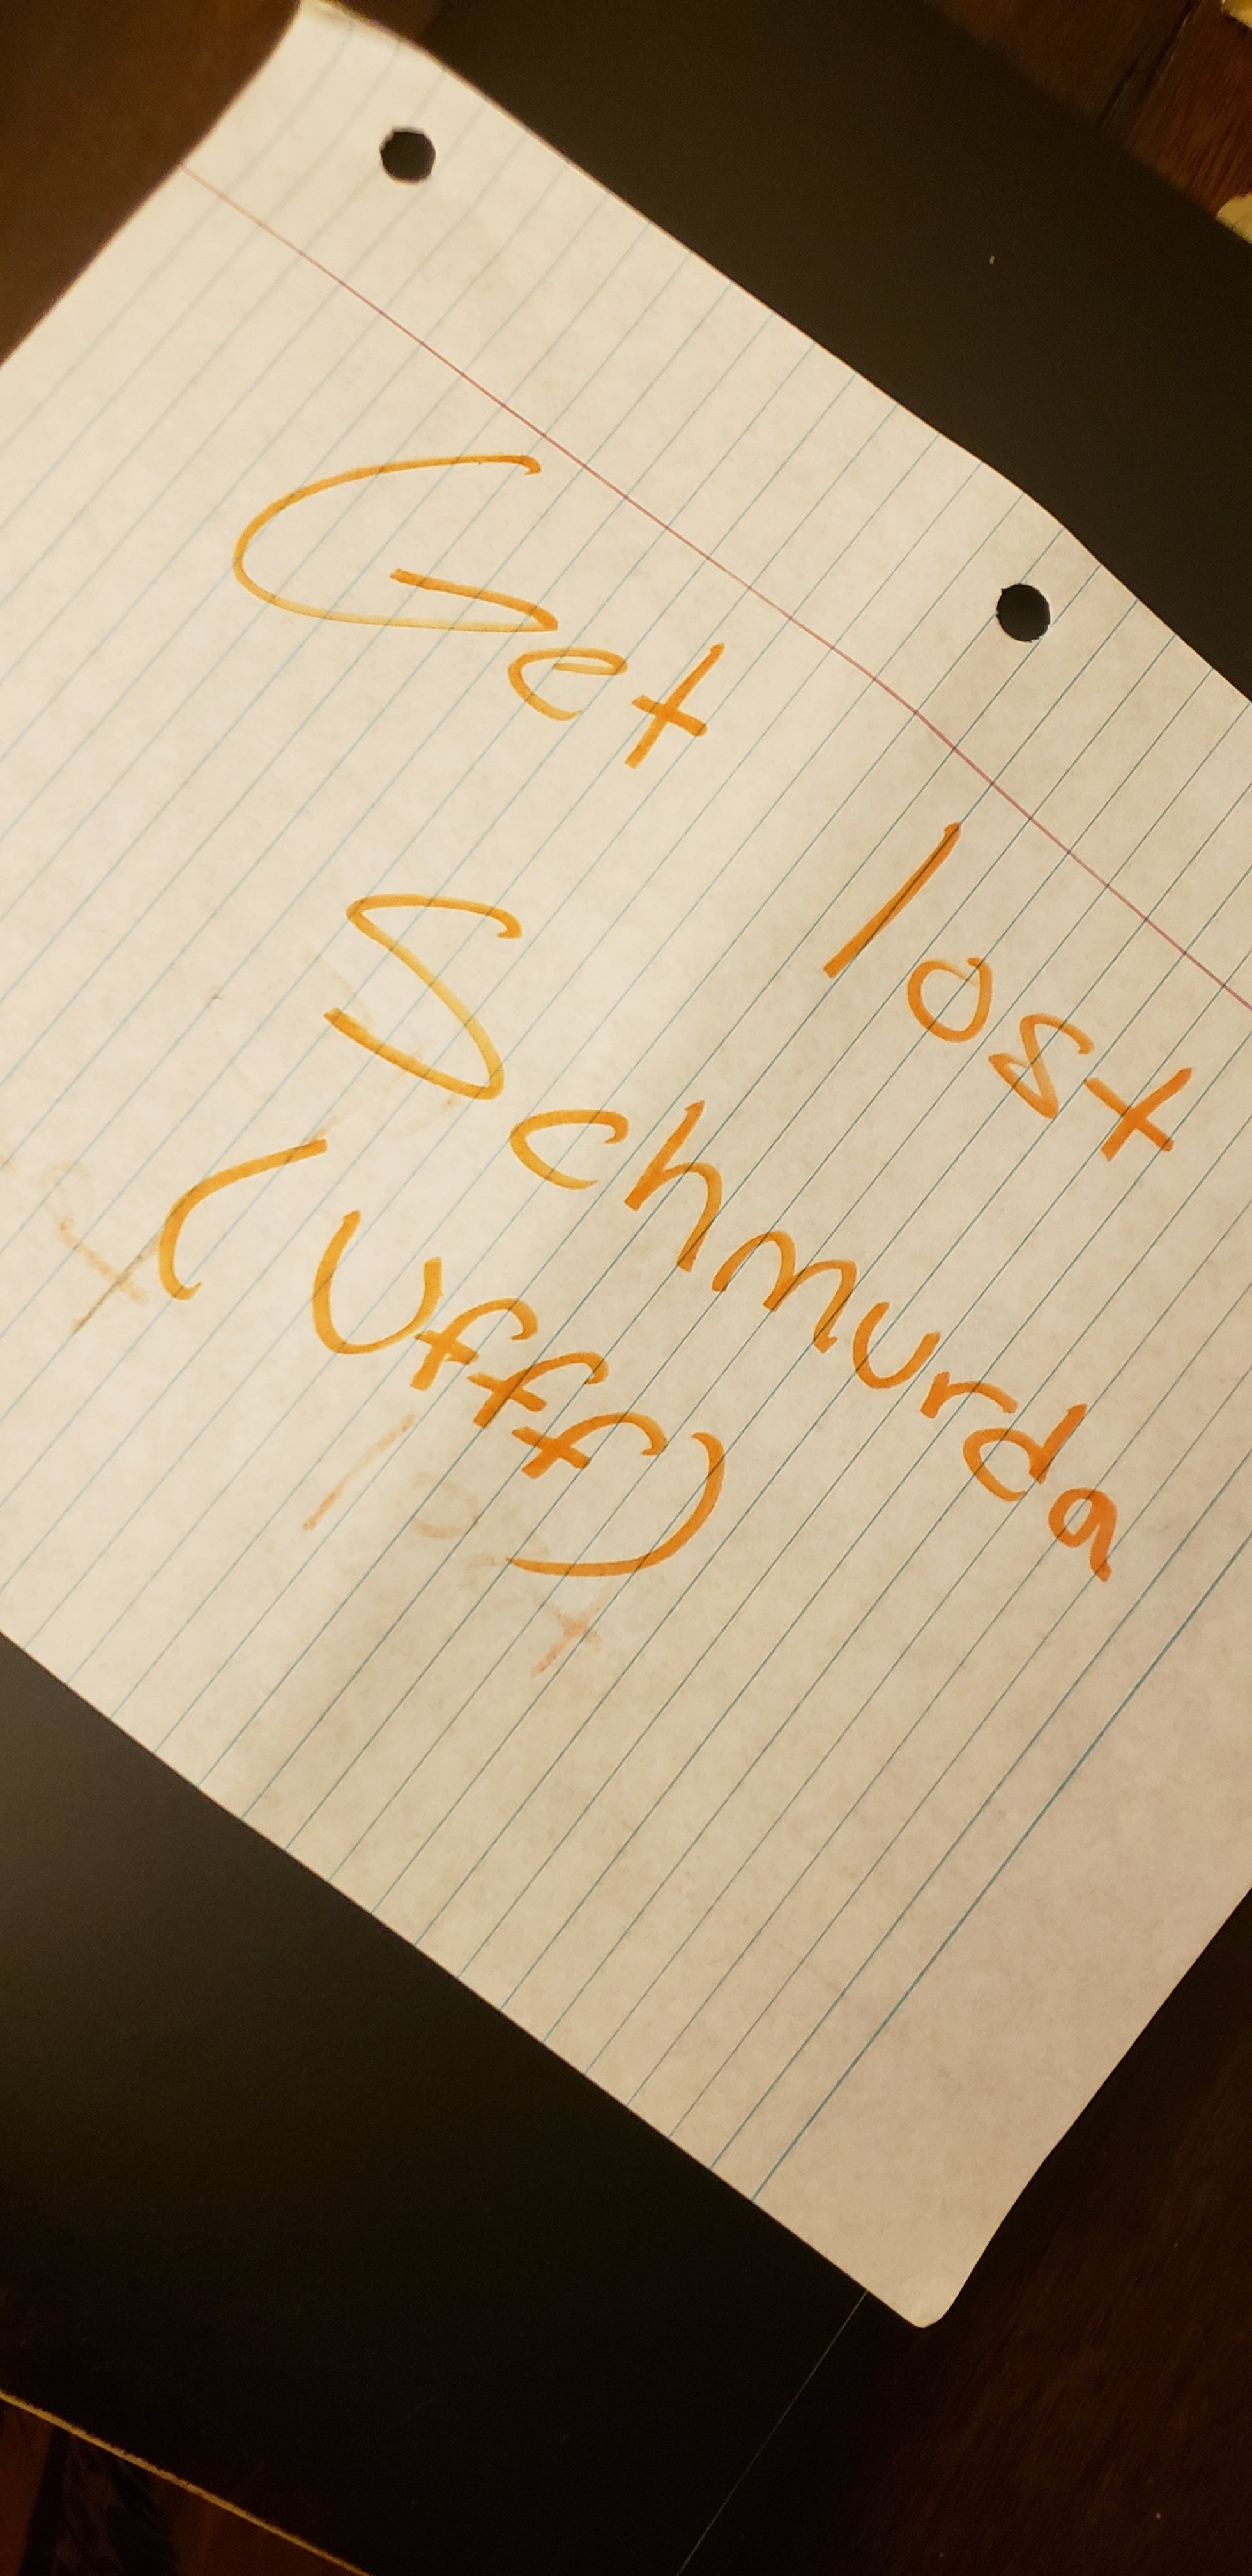 Get lost
Schmurda
(Ufff)